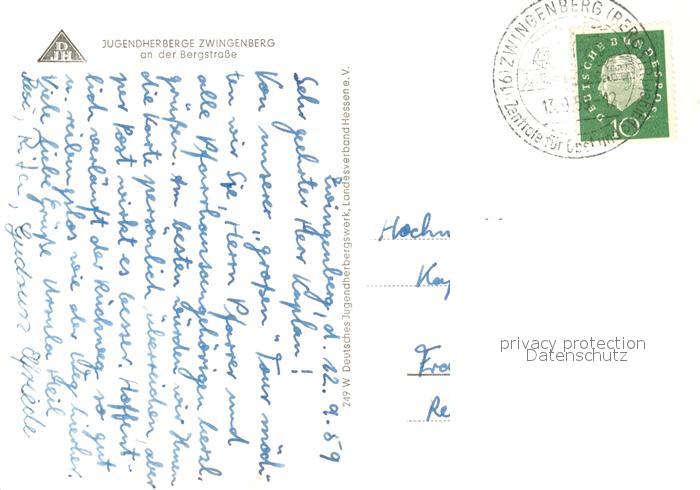 DJH
JUGENDHERBERGE ZWINGENBERG
an der Bergstraße
Zwingenberg, d. 12.9.59
Sehr geehrter Herr Kaplan!
Von unserer "großen" Tour möch-
ten wir Sie, Herrn Pfarrer und
alle Pfarrhausangehörigen herzl.
grüßen. Am besten würden wir Ihnen
die Karte persönlich überreichen, aber
per Post wirkt es besser. Hoffent-
lich verläuft der Rückweg so gut
u. reibungslos wie der Weg hierher.
Viele liebe Grüße Ursula Heil
Resi, Rita, Gudrun Elfriede
249 W Deutsches Jugendherbergswerk, Landesverband Hessen e.V.
(16) ZWINGENBERG (BERGSTR
13.9.5
Zentrale für Obst
DEUTSCHE BUNDESPOST
10
Hochw
Kap
Fra
Re
privacy protection
Datenschutz